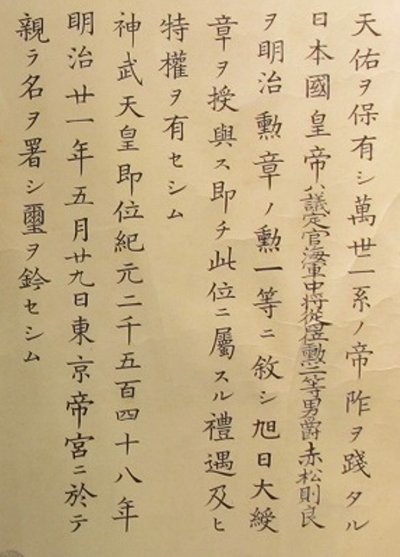 天佑ヲ保有シ萬世一系ノ帝阼ヲ踐タル
日本國皇帝ハ議定官海軍中将従四位勲二等男爵赤松則良
ヲ明治勳章ノ勳一等ニ敘シ旭日大綬
章ヲ授與ス即チ此位ニ屬スル禮遇及ヒ
特權ヲ有セシム
神武天皇即位紀元二千五百四十八年
明治廿一年五月廿九日東京帝宮ニ於テ
親ラ名ヲ署シ璽ヲ鈐セシム